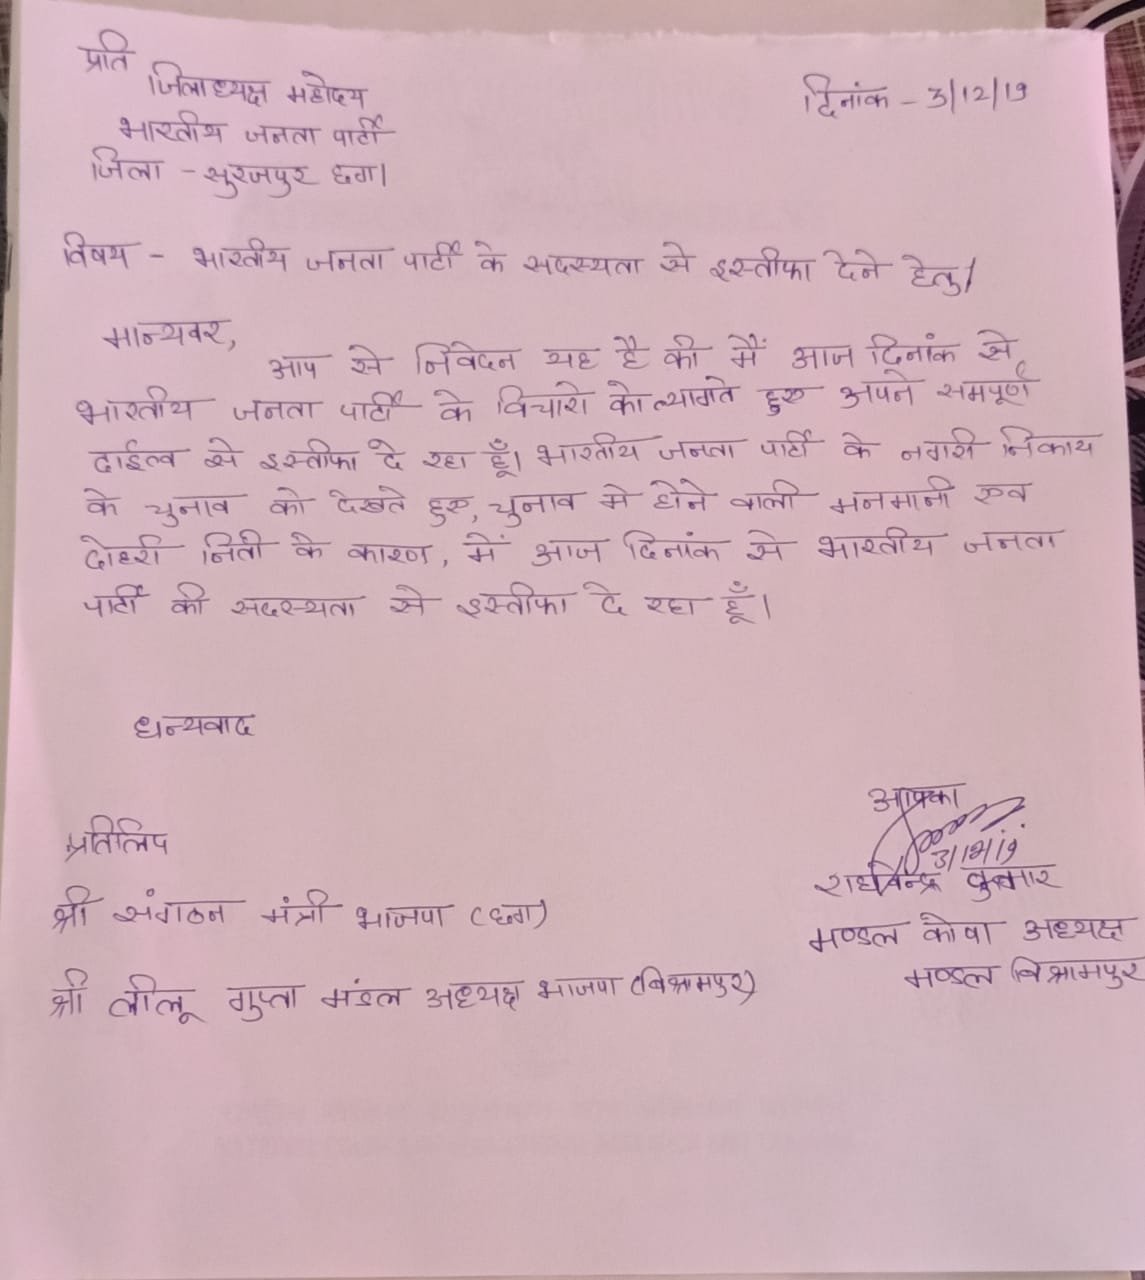 प्रति
जिलाध्यक्ष महोदय
दिनांक - 3/12/19
भारतीय जनता पार्टी
जिला - सुरजपुर छग।
विषय - भारतीय जनता पार्टी के सदस्यता से इस्तीफा देने हेतु।
मान्यवर,
आप से निवेदन यह है की मैं आज दिनांक से
भारतीय जनता पार्टी के विचारो को त्यागते हुए अपने समपूर्ण
दाईत्व से इस्तीफा दे रहा हूँ। भारतीय जनता पार्टी के नगरी निकाय
के चुनाव को देखते हुए, चुनाव मे होने वाली मनमानी एव
दोहरी निती के कारण, में आज दिनांक से भारतीय जनता
पार्टी की सदस्यता से इस्तीफा दे रहा हूँ।
धन्यवाद
आपका
3/12/19
प्रतिलिप
राघवेन्द्र कुमार
श्री संगठन मंत्री भाजपा (छग)
मण्डल कोषा अध्यक्ष
मण्डल विश्रामपुर
श्री लीलू गुप्ता मंडल अध्यक्ष भाजपा (विश्रामपुर)